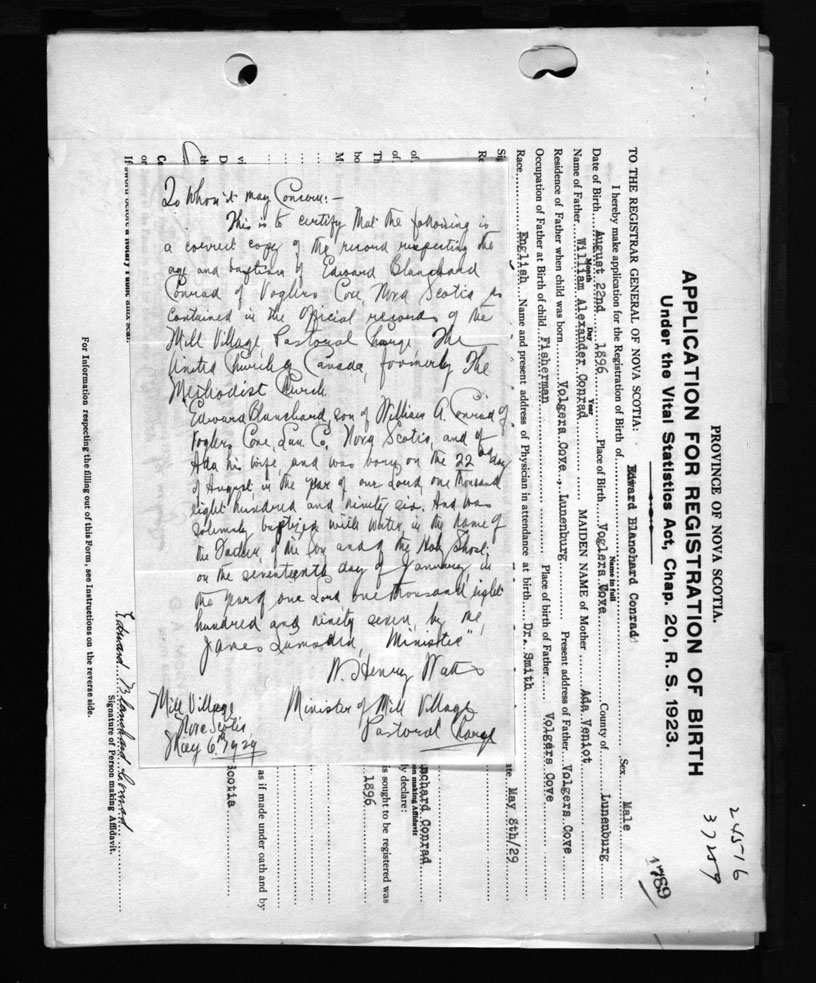 PROVINCE OF NOVA SCOTIA.
APPLICATION FOR REGISTRATION OF BIRTH
Under the Vital Statistics Act, Chap. 20, R. S. 1923.
245-16
37259
1789
TO THE REGISTRAR GENERAL OF NOVA SCOTIA:
I hereby make application for the Registration of Birth of Edward Blanchard Conrad Sex Male
Name in full
Date of Birth August 22nd 1896 Place of Birth Voglers Cove County of Lunenburg
Month Day Year
Name of Father William Alexander Conrad MAIDEN NAME of Mother Ada Veniot
Residence of Father when child was born Volgers Cove, Lunenburg Present address of Father Volgers Cove
Occupation of Father at Birth of child Fisherman Place of birth of Father Volgers Cove
Race English Name and present address of Physician in attendance at birth Dr. Smith
May 8th/29
nchard Conrad
on making Affidavit
ly declare:
is sought to be registered was
1896
as if made under oath and by
Scotia
Edward Blanchard Conrad
Signature of Person making Affidavit.
For Information respecting the filling out of this Form, see Instructions on the reverse side.
To Whom it may Concern:—
This is to certify that the following is
a correct copy of the record respecting the
age and baptism of Edward Blanchard
Conrad of Voglers Cove Nova Scotia as
contained in the official records of the
Mill Village Pastoral Charge The
United Church of Canada, formerly The
Methodist Church
Edward Blanchard, son of William A. Conrad of
Voglers Cove, Lun. Co. Nova Scotia, and of
Ada his wife, and was born on the 22nd day
of August in the year of our Lord, one thousand
eight hundred and ninety six. And was
solemnly baptized with water, in the name of
the Father, of the Son and of the Holy Ghost;
on the seventeenth day of January in
the year of our Lord one thousand eight
hundred and ninety seven, by me,
James Lumsden, Minister"
W. Henry Watts
Minister of Mill Village
Pastoral Charge
Mill Village
Nova Scotia
May 6th 1929